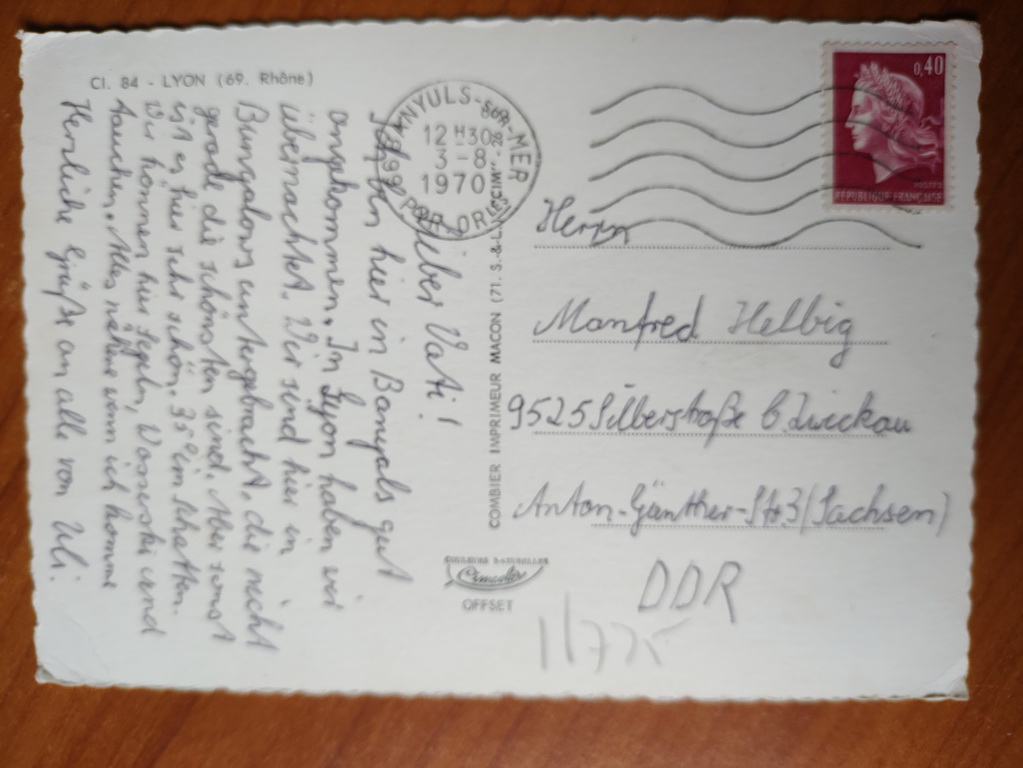 Cl. 84 - LYON (69. Rhône)
Lieber Vati!
hier in Banyuls gut
angekommen. In Lyon haben wir
übernachtet. Wir sind hier in
Bungalows untergebracht, die nicht
gerade die schönsten sind. Aber sonst
ist es hier sehr schön. 35° im Schatten.
Wir können hier segeln, Wasserski und
tauchen. Alles nähere wenn ich komme
Herzliche Grüße an alle von Uli.
BANYULS-SUR-MER
12 H30
3-8
1970
PYR-ORIES
COMBIER IMPRIMEUR MACON (71. S.-&-L.) "CIM"
COULEURS NATURELLES
OFFSET
0,40
POSTES
REPUBLIQUE FRANÇAISE
Herrn
Manfred Helbig
9525 Silberstraße b. Zwickau
Anton-Günther-Str 3 (Sachsen)
DDR